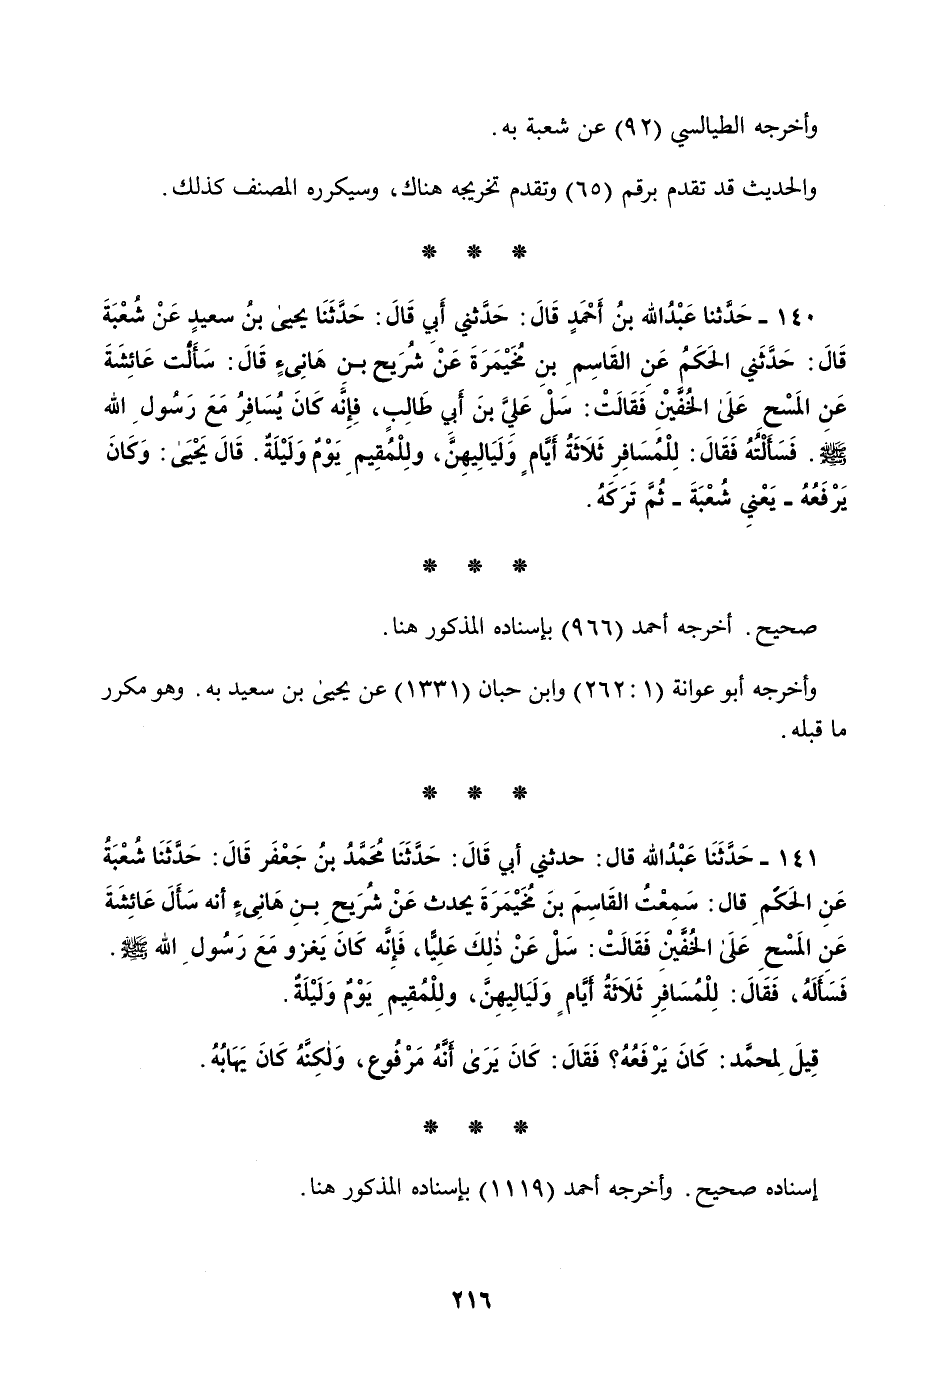 وأخرجه الطيالسي (٩٢) عن شعبة به.
والحديث قد تقدم برقم (٦٥) وتقدم تخريجه هناك، وسيكرره المصنف كذلك.
* * *
١٤٠ ـ حَدَّثنا عَبْدُالله بنُ أَحْمَدٍ قَالَ: حَدَّثني أَبي قَالَ: حَدَّثَنَا يحيىٰ بنُ سعيدٍ عَنْ شُعْبَةَ
قَالَ: حَدَّثَني الحَكَمُ عَنِ القَاسِمِ بن مُخَيْمَرَةَ عَنْ شُرَيح بـنِ هَانِىءٍ قَالَ: سَأَلْت عَائِشَةَ
عَنِ المَسْحِ عَلَىٰ الخُفَّيْنْ فَقَالَتْ: سَلْ عَليَّ بنَ أَبي طَالِبٍ، فَإِنَّه كَانَ يُسَافِرُ مَعَ رَسُولِ الله
ﷺ. فَسَأَلْتُهُ فَقَالَ: لِلْمُسَافرِ ثَلَاثَةُ أَيَّامٍ وَلَيَاليهِنَّ، وللْمُقيمِ يَوْمٌ وَلَيْلَةٌ. قَالَ يَحْيَىٰ: وَكَانَ
يَرْفَعُهُ ـ يَعْنيِ شُعْبَةَ ـ ثُمَّ تَرَكَهُ.
* * *
صحيح. أخرجه أحمد (٩٦٦) بإسناده المذكور هنا.
وأخرجه أبو عوانة (١: ٢٦٢) وابن حبان (١٣٣١) عن يحيىٰ بن سعيد به. وهو مكرر
ما قبله.
* * *
١٤١ ـ حَدَّثَنَا عَبْدُالله قال: حدثني أبي قَالَ: حَدَّثَنَا مُحَمَّدُ بنُ جَعْفَر قَالَ: حَدَّثَنَا شُعْبَةُ
عَنِ الحَكَمِ قال: سَمِعْتُ القَاسِمَ بنَ مُخَيْمَرَةَ يحدث عَنْ شُرَيحِ بـنِ هَانِىءٍ أنه سَأَلَ عَائِشَةَ
عَنِ المَسْحِ عَلَىٰ الخُفَّيْنْ فَقَالَتْ: سَلْ عَنْ ذٰلِكَ عَليًّا، فَإِنَّه كَانَ يَغزو مَعَ رَسُولِ الله ﷺ.
فَسَأَلَهُ، فَقَالَ: لِلْمُسَافرِ ثَلَاثَةُ أَيَّامٍ وَلَيَاليهِنَّ، وللْمُقيمِ يَوْمٌ وَلَيْلَةٌ.
قِيلَ لمحمَّد: كَانَ يَرْفَعُهُ؟ فَقَالَ: كَانَ يَرَىٰ أَنَّهُ مَرْفُوع، وَلٰكِنَّهُ كَانَ يَهَابُهُ.
* * *
إسناده صحيح. وأخرجه أحمد (١١١٩) بإسناده المذكور هنا.
٢١٦